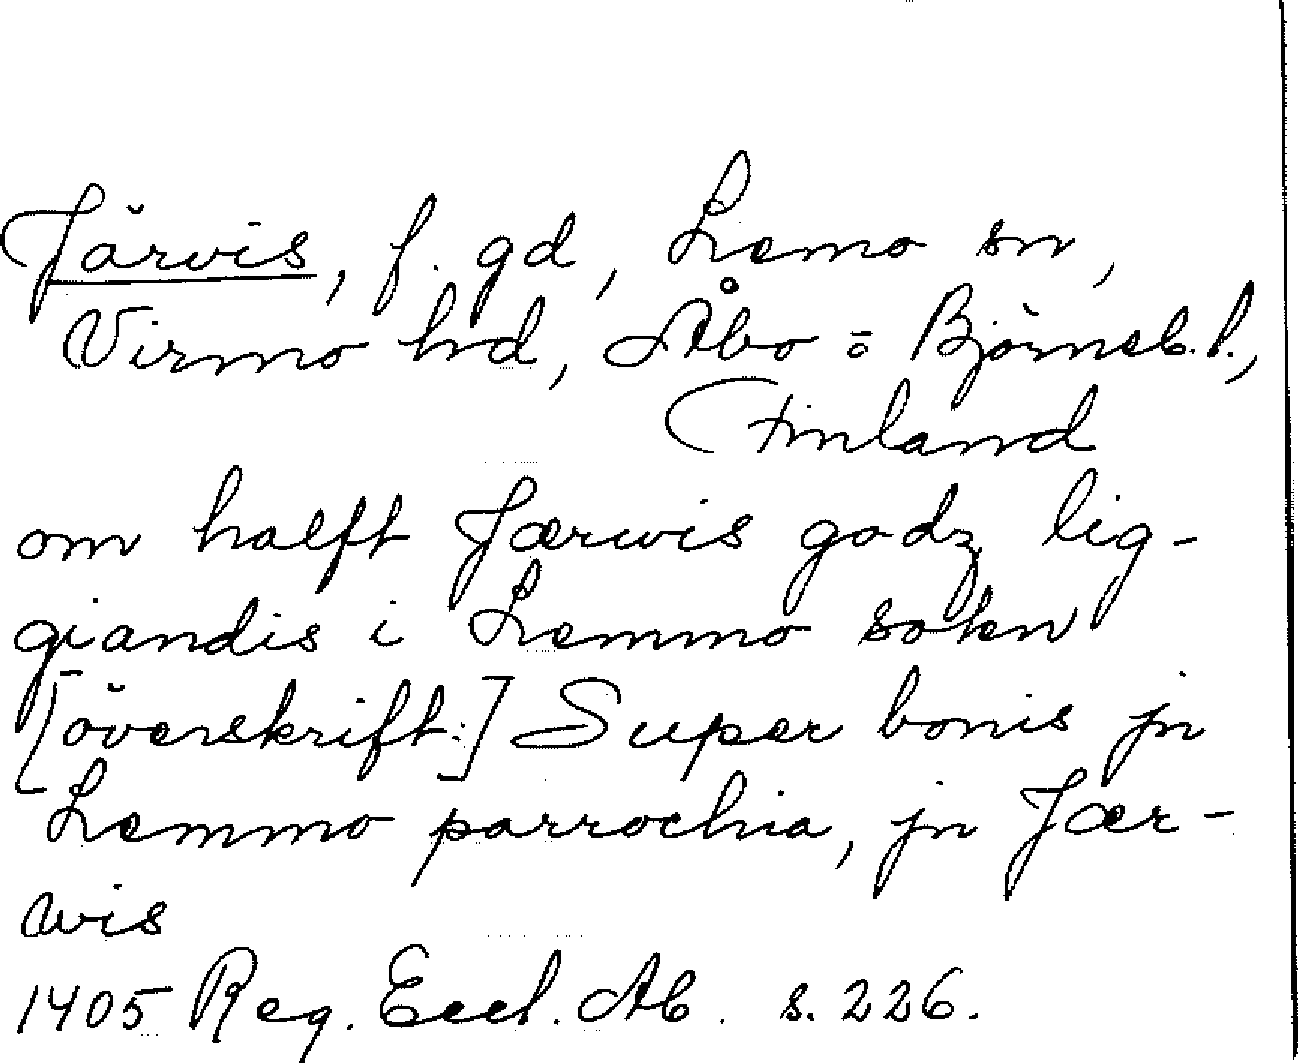 Järvis, f. gd, Lemo sn,
Virmo hd, Åbo = Björneb. l.,
Finland
om halfft Jærwis godz lig-
giandis i Lemmo sokn
[överskrift:] Super bonis jn
Lemmo parrochia, jn Jær-
wis
1405 Reg. Eccl. Ab. s. 226.